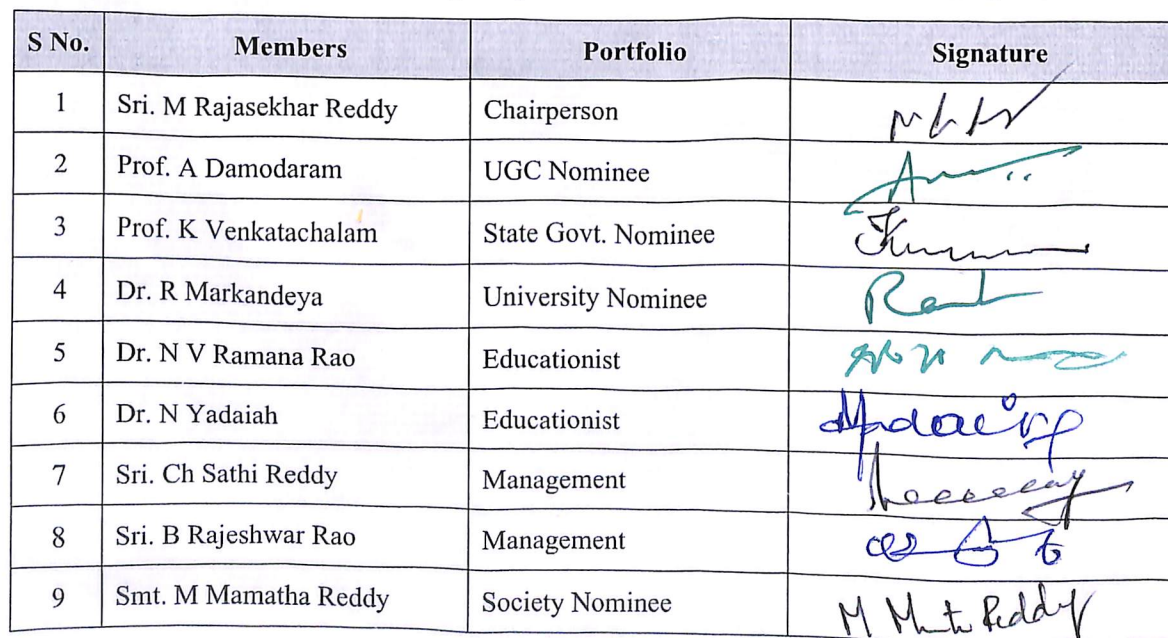 S No. Members Portfolio Signature
1 Sri. M Rajasekhar Reddy Chairperson
2 Prof. A Damodaram UGC Nominee
3 Prof. K Venkatachalam State Govt. Nominee
4 Dr. R Markandeya University Nominee
5 Dr. N V Ramana Rao Educationist
6 Dr. N Yadaiah Educationist
7 Sri. Ch Sathi Reddy Management
8 Sri. B Rajeshwar Rao Management
9 Smt. M Mamatha Reddy Society Nominee M Reddy